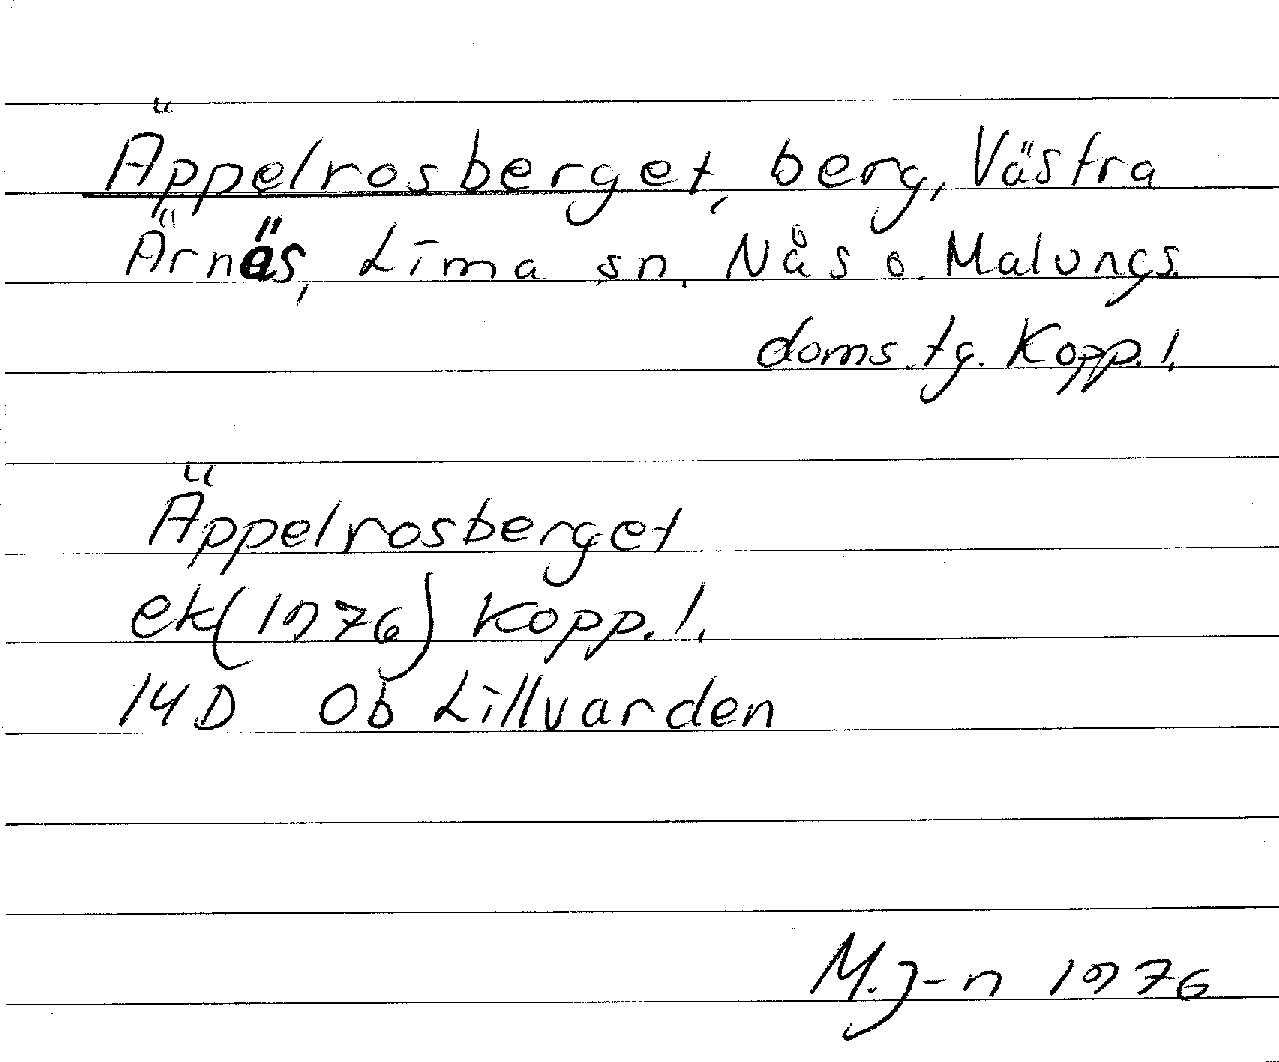 Äppelrosberget, berg, Västra
Ärnäs, Lima sn. Nås o. Malungs
doms.tg. Kopp.l.
Äppelrosberget
ek(1976) Kopp.l.
14D Ob Lillvarden
M.J-n 1976